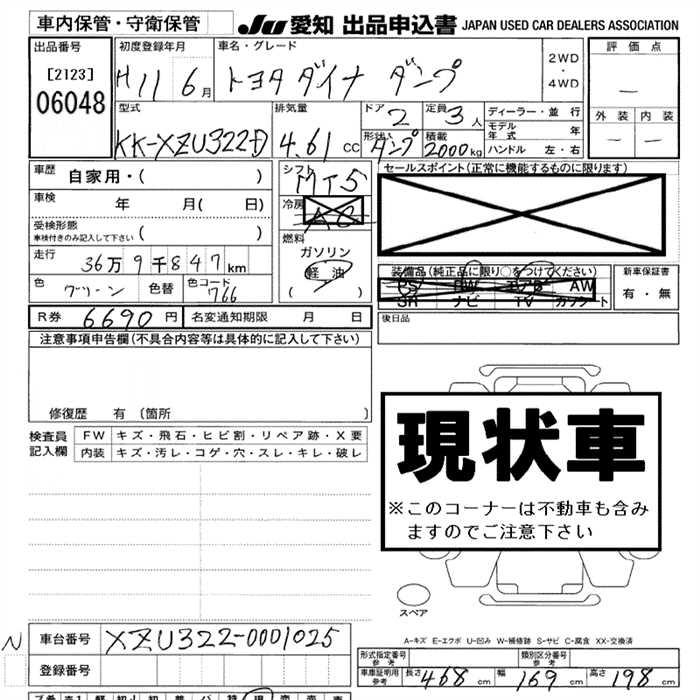 車内保管・守衛保管
JU 愛知 出品申込書 JAPAN USED CAR DEALERS ASSOCIATION
出品番号 初度登録年月 車名・グレード 2WD ・ 4WD 評価点
[2123] H 11 6月 トヨタダイナ ダンプ —
06048
型式 排気量 ドア 2 定員 3人 ディーラー・並行 外装 内装
モデル年式 年
KK-XZU322D 4.61 CC 形状 ダンプ 積載 2000kg ハンドル 左・右 — —
車歴 自家用・( ) シフト MT5 セールスポイント(正常に機能するものに限ります)
車検 年 月( 日) 冷房 AC
受検形態
車検付きのみ記入して下さい ( )
燃料
ガソリン
走行 36万9千847km 軽油 装備品(純正品に限り○をつけてください) 新車保証書
( ) PS PW エアB AW 有・無
色 グリーン 色替 色コード 766 SR ナビ TV カセット
R券 6690円 名変通知期限 月 日 後日品
注意事項申告欄(不具合内容等は具体的に記入して下さい)
修復歴 有 〔箇所 〕
現状車
※このコーナーは不動車も含み
ますのでご注意下さい
検査員 FW キズ・飛石・ヒビ割・リペア跡・X要
記入欄 内装 キズ・汚レ・コゲ・穴・スレ・キレ・破レ
スペア
A-キズ E-エクボ U-凹み W-補修跡 S-サビ C-腐食 XX-交換済
N 車台番号 XZU322-0001025
登録番号
形式指定番号 参考 類別区分番号 参考
車庫証明用 参考 長さ 468cm 幅 169cm 高さ 198cm